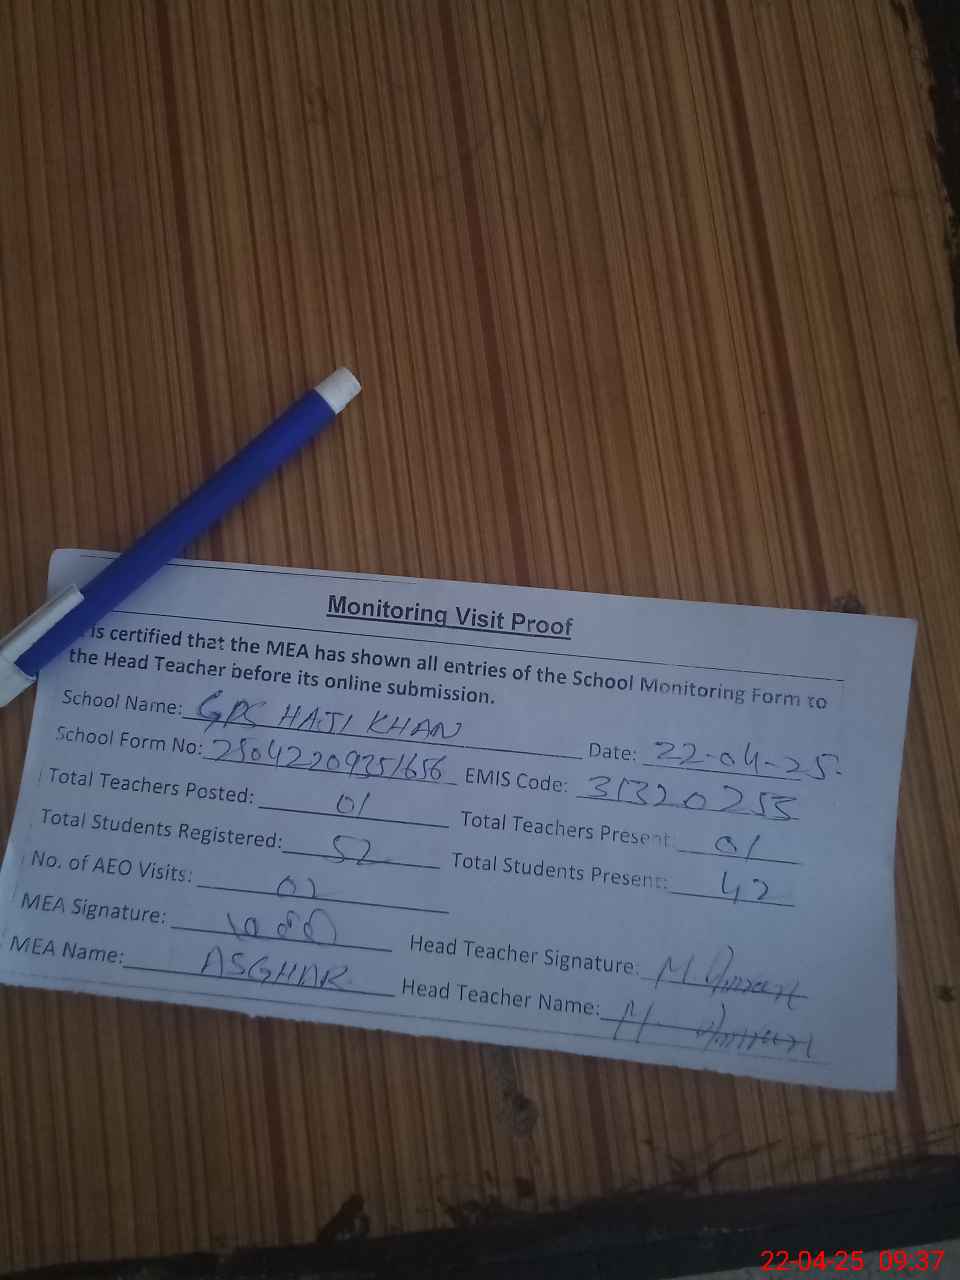 Monitoring Visit Proof
is certified that the MEA has shown all entries of the School Monitoring Form to
the Head Teacher before its online submission.
School Name: GPS HAJI KHAN Date: 22-04-25
School Form No: 25042209351656 EMIS Code: 31320255
Total Teachers Posted: 01 Total Teachers Present: 01
Total Students Registered: 52 Total Students Present: 42
No. of AEO Visits:
MEA Signature: Head Teacher Signature: M
MEA Name: ASGHAR Head Teacher Name: M
22-04-25 09:37